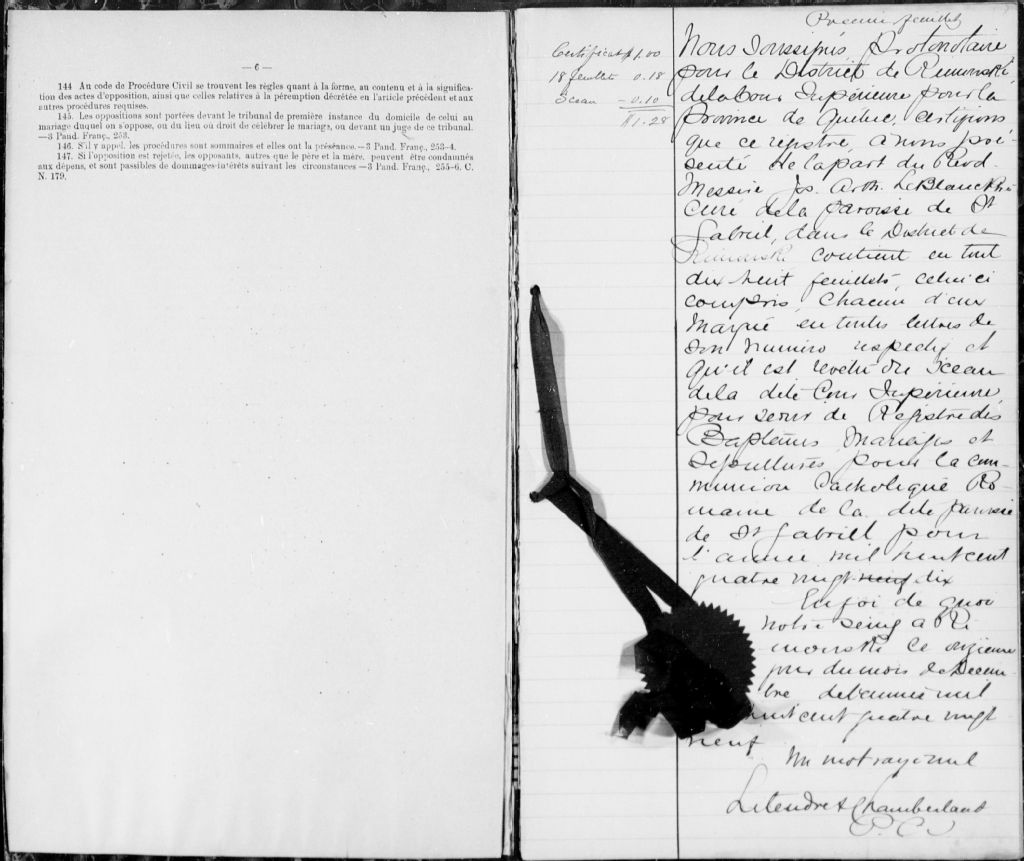 — 6 —
144 Au code de Procédure Civil se trouvent les règles quant à la forme, au contenu et à la significa-
tion des actes d'opposition, ainsi que celles relatives à la péremption décrétée en l'article précédent et aux
autres procédures requises.
145. Les oppositions sont portées devant le tribunal de première instance du domicile de celui au
mariage duquel on s'oppose, ou du lieu où droit de célébrer le mariage, ou devant un juge de ce tribunal.
—3 Pand. Franç., 253.
146. S'il y appel, les procédures sont sommaires et elles ont la présénce.—3 Pand. Franç., 253-4.
147. Si l'opposition est rejetée, les opposants, autres que le père et la mère, peuvent être condamnés
aux dépens, et sont passibles de dommages-intérêts suivant les circonstances—3 Pand. Franç., 255-6. C.
N. 179.
Certificat $1.00
18 feuillets 0.18
Sceau — 0.10
$1.28
Premier feuillet
Nous Soussignés Protonotaire
pour le District de Rimouski,
de la Cour Supérieure pour la
Province de Québec, certifions
que ce registre, à nous pré-
senté de la part du Revd.
Messire Js. Arth. LeBlanc Ptre
curé de la paroisse de St
Gabriel, dans le District de
Rimouski contient en tout
dix huit feuillets, celui ci
compris, Chacun d'eux
Marqué en toutes lettres de
son numéro respectif et
qu'il est revêtu du Sceau
de la dite Cour Supérieure,
pour servir de Registre des
Baptêmes, Mariages et
Sépultures pour la com-
munion Catholique Ro-
maine de la dite paroisse
de St Gabriel pour
l'année mil huit cent
quatre vingt neuf dix
En foi de quoi
notre seing à Ri
mouski ce onzième
jour du mois de Décem-
bre de l'année mil
huit cent quatre vingt
neuf
Un mot rayé nul
Letendre & Chamberland
P. C. S